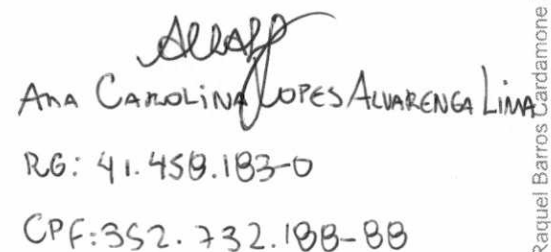 Ana Carolina Lopes Alvarenga Lima
RG: 41.458.183-0
CPF: 352.732.188-88
Raquel Barros Cardamone